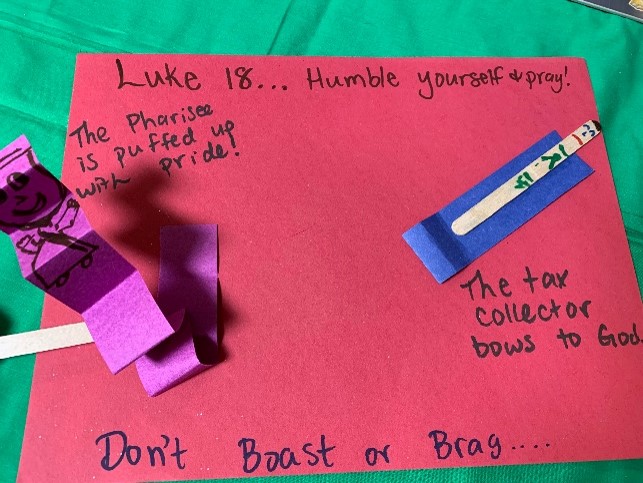 Luke 18... Humble yourself & pray!
The Pharisee
is puffed up
with pride!
The tax
collector
bows to God.
Don't Boast or Brag....